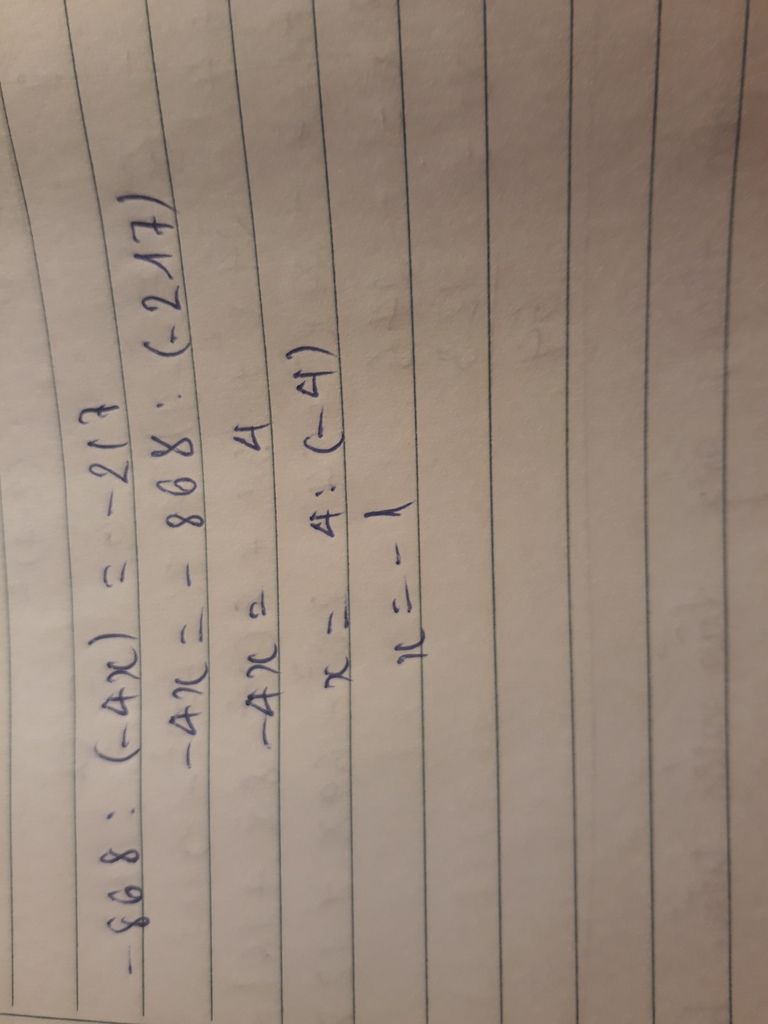 -868 : (-4x) = -217
-4x = - 868 : (-217)
-4x = 4
x = 4 : (-4)
x = - 1